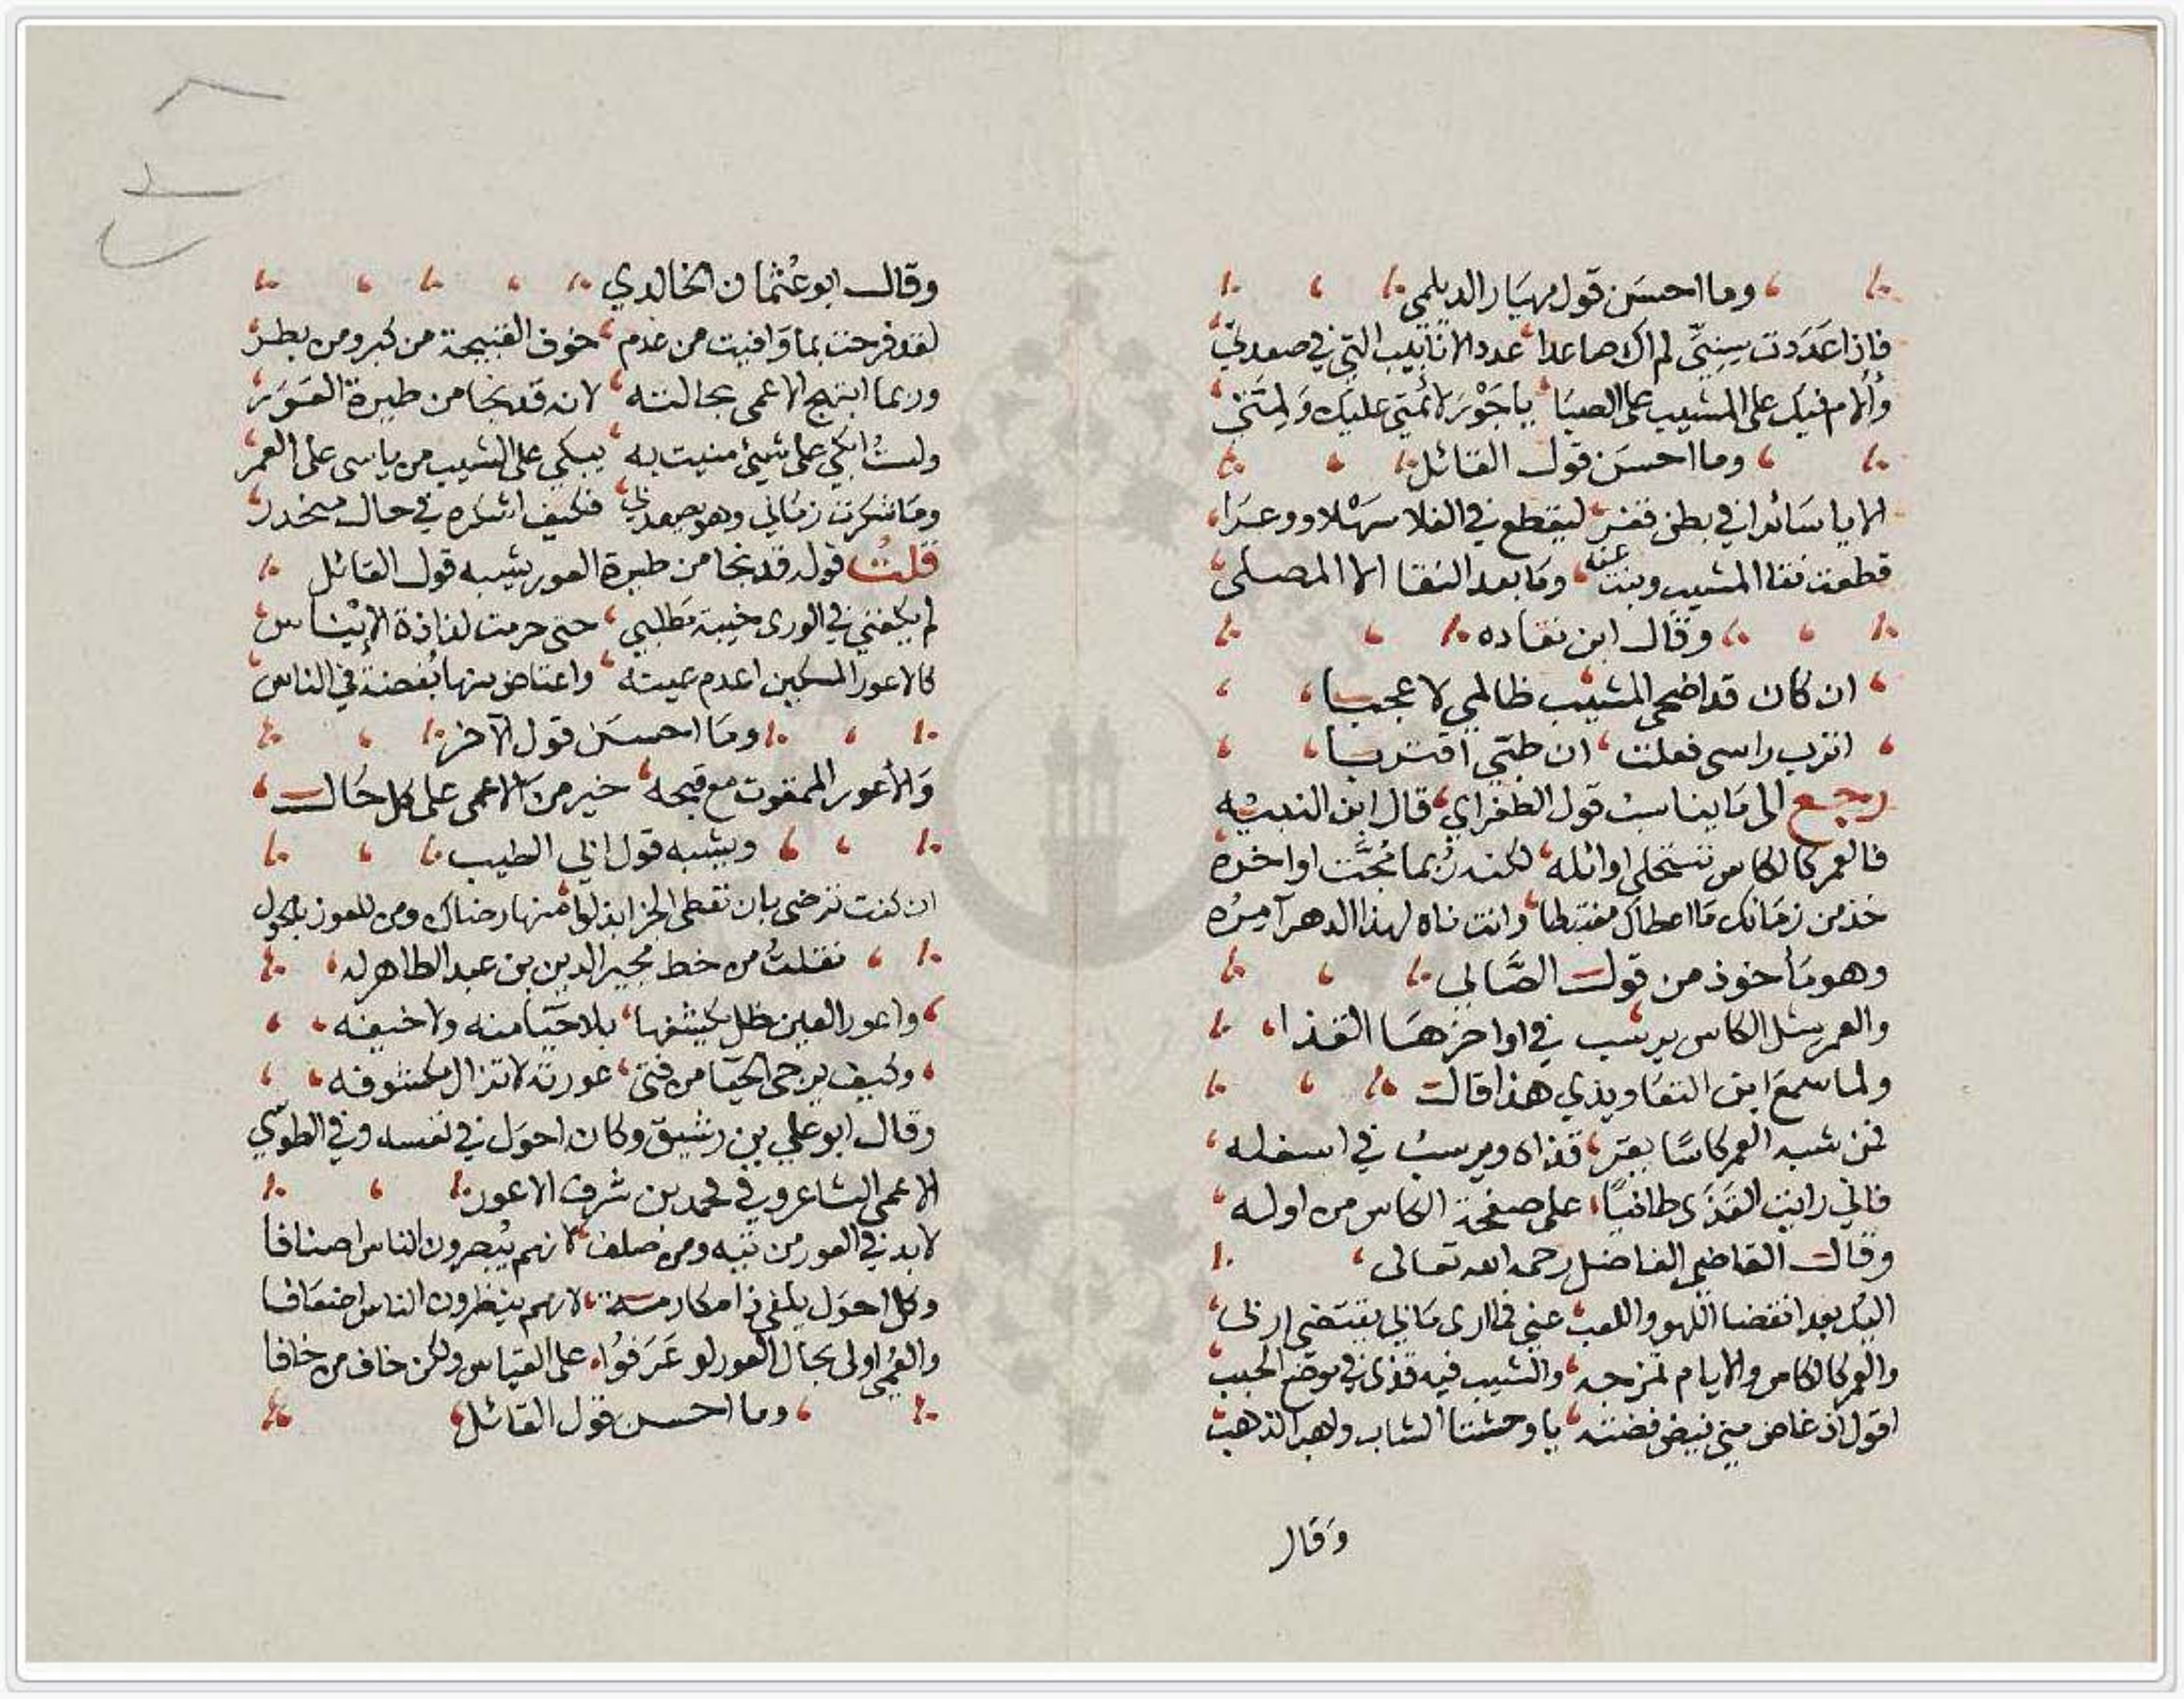 وما احسَن قول مهيَار الديلمي
فاِذا عَدَدت سِنِيَّ لم اك صاعدا عدد الانابيب التي في صعدتي
وأُلام فيك على المشيب على الصبَا يا جَوْرَ لائمتي عليك وَلِمَّتي
وما احسَن قول القائل
الا يا سَائرا في بطن قفر ليقطع في الفلا سهْلا ووعرَا
قطعت نقا المشيب وبنت عنه ومَا بعد النقا الا المصلى
وقال ابن نقاده
ان كان قد اضحى المشيب ظالمي لا عجبا
اترب راسى فعلت ان طبّي اقتربا
رجع الى مَا يناسبُ قول الطغراي قال ابن النبيْه
فالعمر كالكاس تستحلى اوائله لكنه رُبما مُجَّت اواخره
خذ من زمَانك مَا اعطاك مغتبطا وانت ناه لهذا الدهر آمرُه
وهو مَأخوذ من قول الصَّابي
والعمر مثل الكاس يرسُب في اواخرهَا القذا
ولما سمعَ ابن التعَاويذي هذا قال
فمن شبه العمر كاسًا يقرّ قذاه ويرسبُ في اسفله
فاني رايت القَذَى طافيًا على صفحة الكاس من اوله
وقال القاضي الفاضل رحمه الله تعالى
اليك بعد انقضا اللهو واللعب عني فما ارى مَا بي يقتضي اربى
والعمر كالكاس والايام تمزجه والشيب فيه قذى في موضع الحبب
اقول اذ غاض مني فيض فضته يا وحشتا لشباب ولهب الذهب
وَقال
وقال ابو عُثمان الخالدي
لقد فرحت بما وَافيت من عدم خوف القبيحة من كبر ومن بطر
وربما ابتهج الاعمى بحالته لانه قد نجا من طيرة العَوَر
ولستُ ابكي على شيئ منيت به يبكي على الشيب من ياسى على العمر
ومَا شكرت زمَاني وهو يصعد بي فكيف اشكره في حال منحدر
قلتُ قوله قد نجا من طيرة العور يشبه قول القائل
لم يكفني في الورى خيبة مَطلبي حتى حرمت لذاذة الإيْنَاس
كالاعور المسكين اعدم عينه واعتاض منها بُغضة في الناس
ومَا احسَن قول الآخر
وَالأعور الممقوت مع قبحه خير من الاعمى على كل حَال
ويشبه قول ابي الطيب
ان كنت ترضى بان تعطى الجزا بذلوا منها رضاك ومن للعور بالحول
نقلتُ من خط مجير الدين بن عبد الظاهر له
واعور العين ظل يكشفها بلا حيَا منه ولا خيفه
وكيف يرجى الحيَا من فتى عورته لا تزال مكشوفه
وقال ابو علي بن رشيق وكان احوَل في نفسه وفي الطوسّي
الاعمى الشاعر وفي محمد بن شرف الاعور
لا بد في العور من تيه ومن صلف لانهم يُبصرون الناس اصنافا
وكل احوَل يلفى ذا مكارمة لانهم ينظرون الناس اضعَافا
والعُمي اولى بحال العور لو عَرَفوُا على القيَاس ولكن خاف من خافا
وما احسن قول القائل